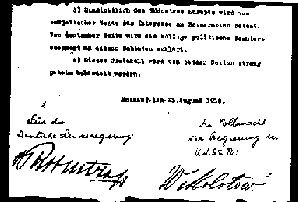 3) Hinsichtlich des Südostens Europas wird von
sowjetischer Seite das Interesse an Bessarabien betont.
Von deutscher Seite wird das völlige politische Desinte-
ressement an diesen Gebieten erklärt.
4) Dieses Protokoll wird von beiden Seiten streng
geheim behandelt werden.
Moskau, den 23. August 1939.
Für die
Deutsche Reichsregierung
In Vollmacht
der Regierung der
UdSSR: